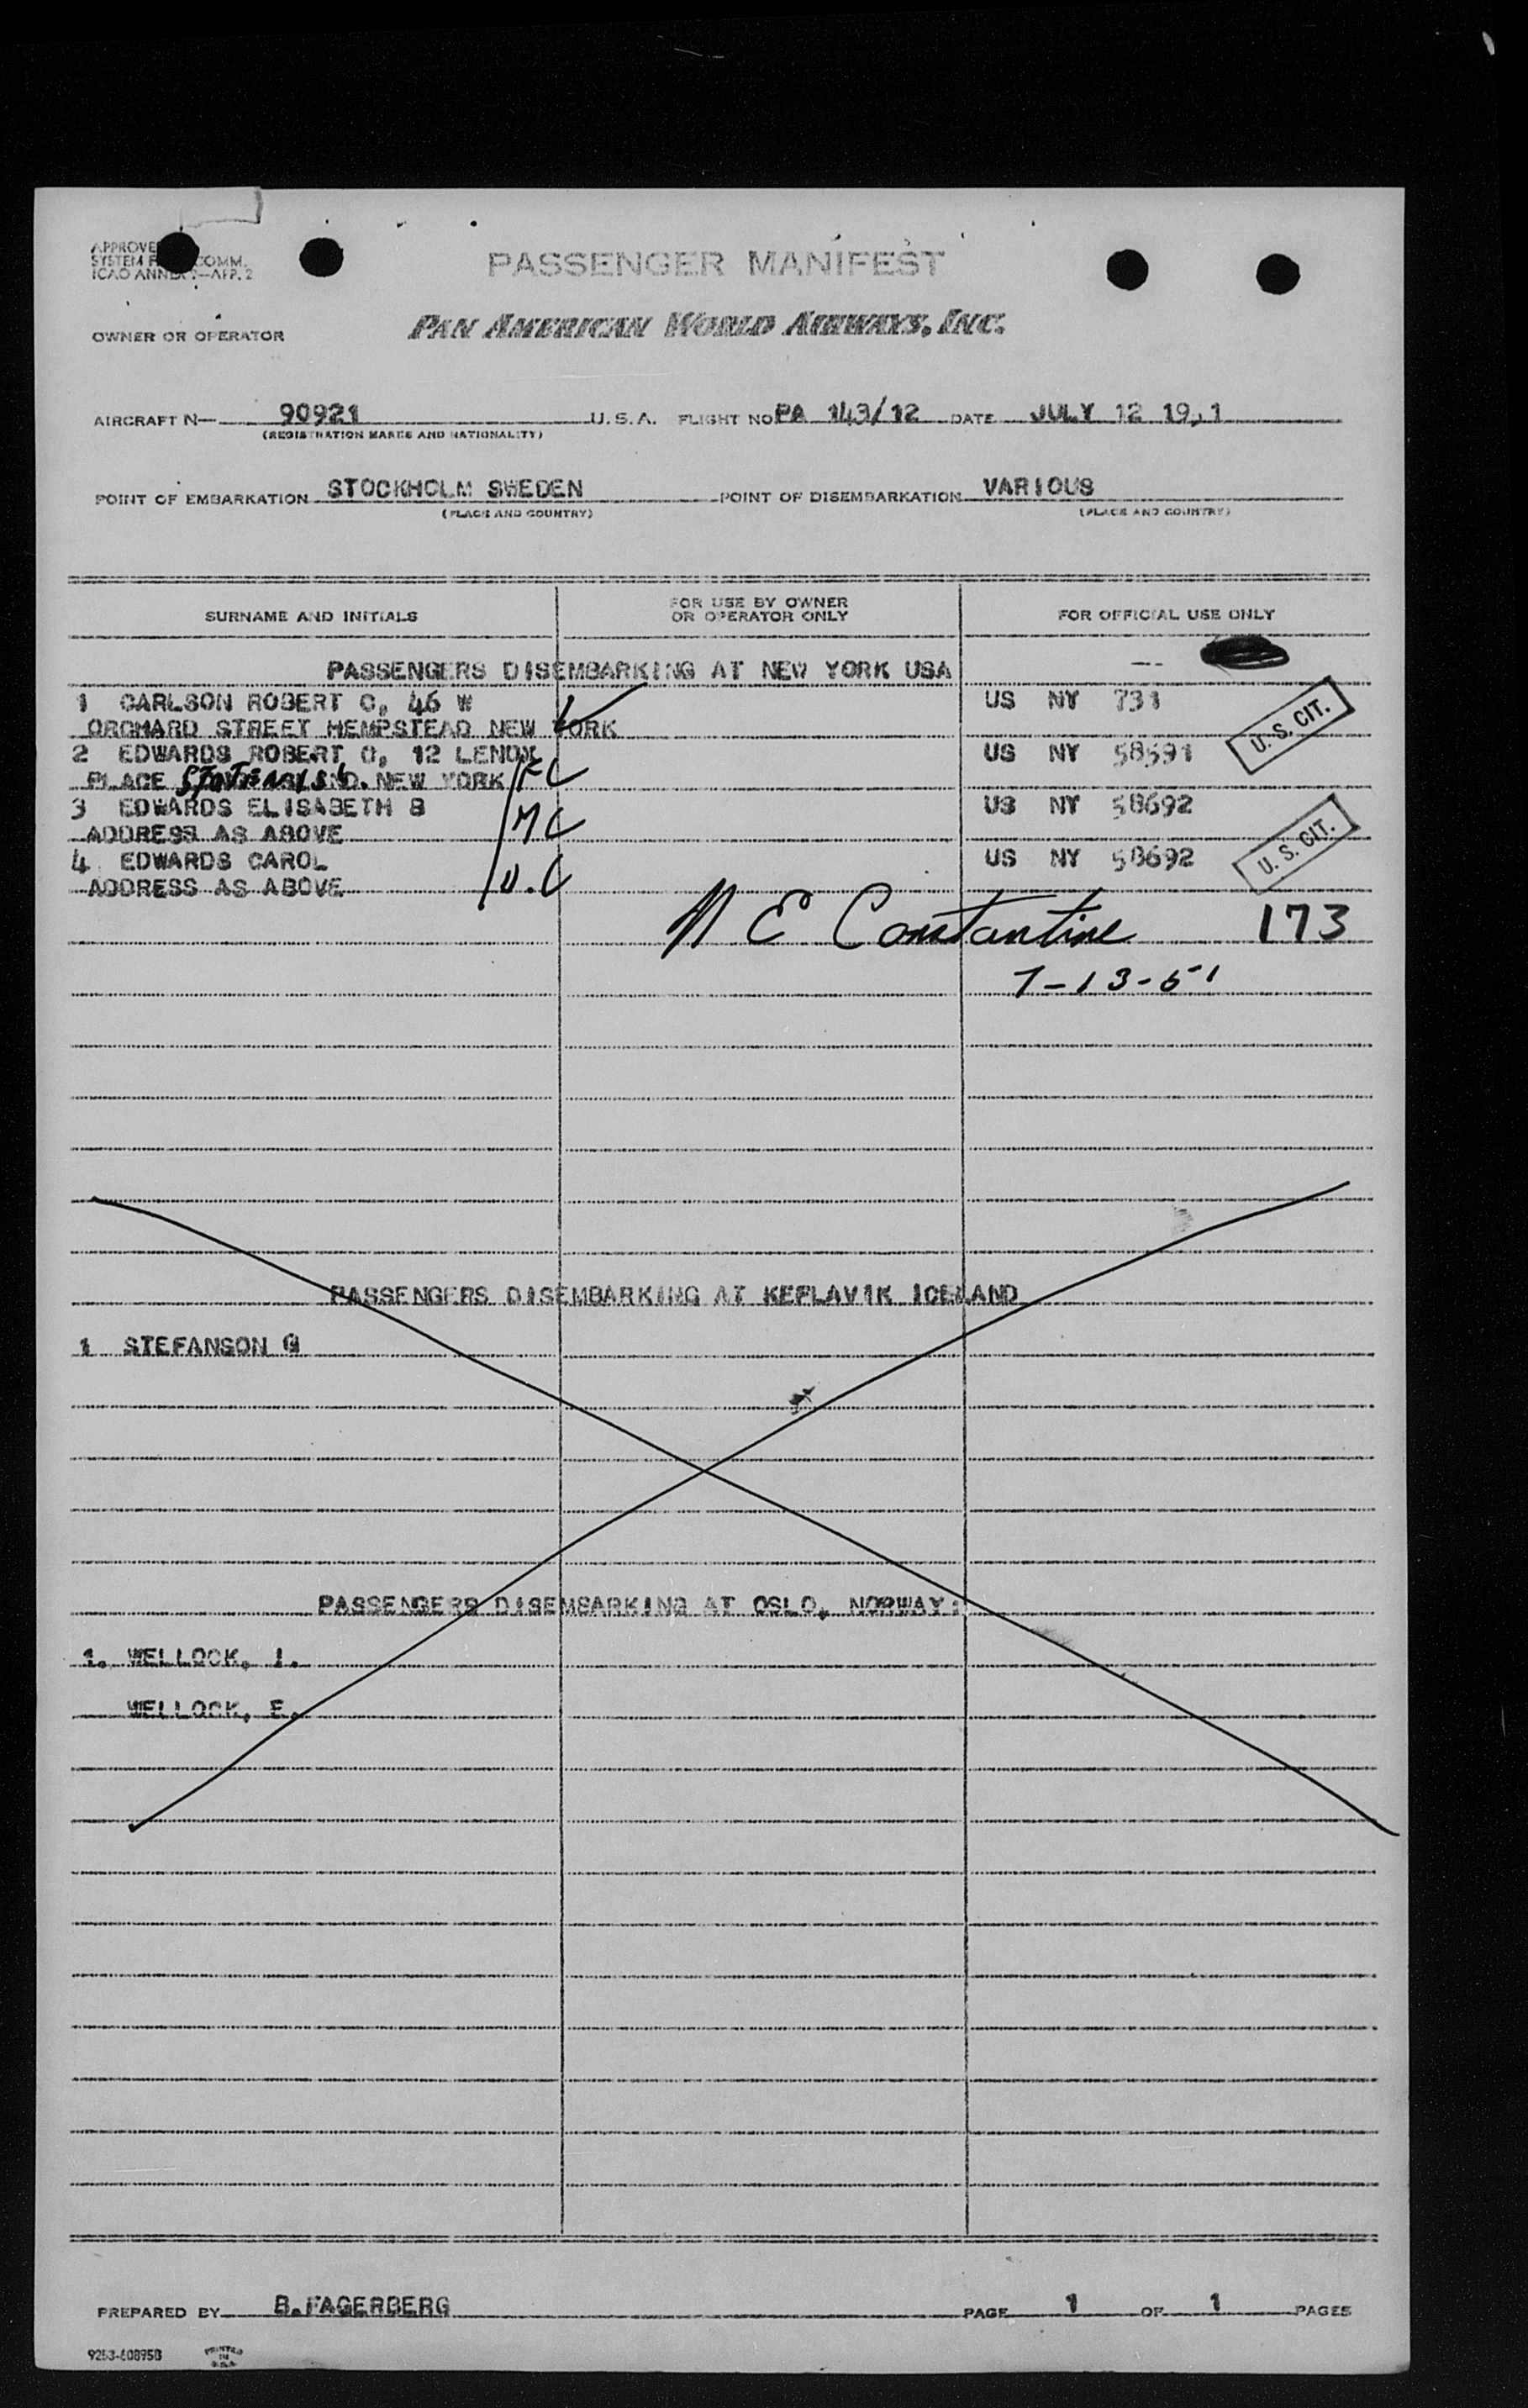 PASSENGER MANIFEST
SYSTEM COMM.
ICAO 2
OWNER OR OPERATOR PAN AMERICAN WORLD AIRWAYS, INC.
AIRCRAFT N— 90921 U.S.A. FLIGHT NO PA 143/12 DATE JULY 12 19,1
(REGISTRATION MARKS AND NATIONALITY)
POINT OF EMBARKATION STOCKHOLM SWEDEN POINT OF DISEMBARKATION VARIOUS
(PLACE AND COUNTRY) (PLACE AND COUNTRY)
SURNAME AND INITIALS FOR USE BY OWNER OR OPERATOR ONLY FOR OFFICIAL USE ONLY
PASSENGERS DISEMBARKING AT NEW YORK USA
1 CARLSON ROBERT C, 46 W US NY 731
ORCHARD STREET HEMPSTEAD NEW YORK U. S. CIT.
2 EDWARDS ROBERT O, 12 LENOX US NY 58691
PLACE NEW YORK
3 EDWARDS ELISABETH B US NY 58692
ADDRESS AS ABOVE MC
4 EDWARDS CAROL US NY 58692 U. S. CIT.
ADDRESS AS ABOVE U.C
N E Constantine 173
7-13-51
PASSENGERS DISEMBARKING AT KEFLAVIK ICELAND
1 STEFANSON G
PASSENGERS DISEMBARKING AT OSLO, NORWAY:
1. WELLOCK, I.
WELLOCK, E.
PREPARED BY B.FAGERBERG PAGE 1 OF 1 PAGES
9253-60895B PRINTED IN U.S.A.